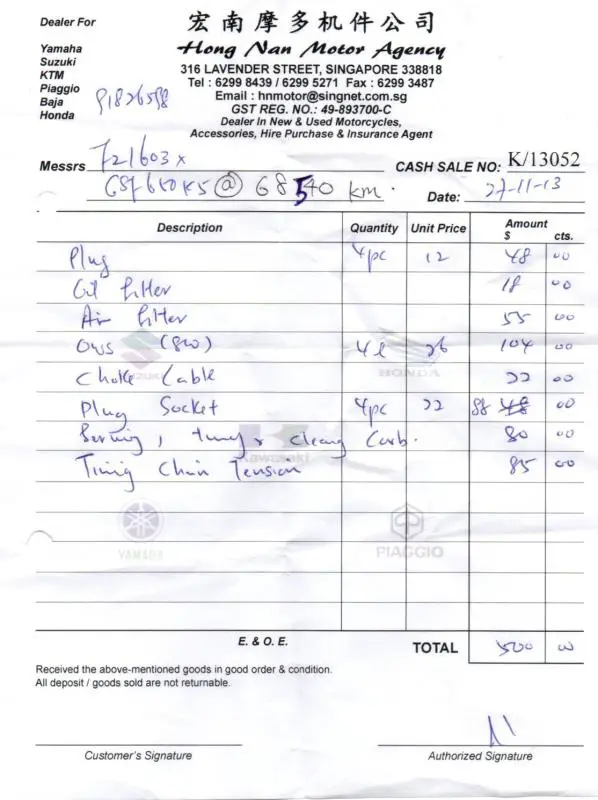 Dealer For
Yamaha
Suzuki
KTM
Piaggio
Baja
Honda
宏南摩多机件公司
Hong Nan Motor Agency
316 LAVENDER STREET, SINGAPORE 338818
Tel : 6299 8439 / 6299 5271 Fax : 6299 3487
Email : hnmotor@singnet.com.sg
GST REG. NO.: 49-893700-C
Dealer In New & Used Motorcycles,
Accessories, Hire Purchase & Insurance Agent
Messrs
CASH SALE NO: K/13052
GSF650K5 @ 68540 km.
Date: 27-11-13
Description Quantity Unit Price Amount $ cts.
Plug 4pc 12 48 00
Oil filter 18 00
Air filter 55 00
(8w) 4l 26 104 00
SUZUKI
HONDA
Choke Cable 22 00
Plug Socket 4pc 22 88 48 00
Carb. 80 00
Kawasaki
Timig Chain Tension 85 00
YAMAHA
PIAGGIO
E. & O. E.
TOTAL 500 00
Received the above-mentioned goods in good order & condition.
All deposit / goods sold are not returnable.
Customer's Signature
Authorized Signature